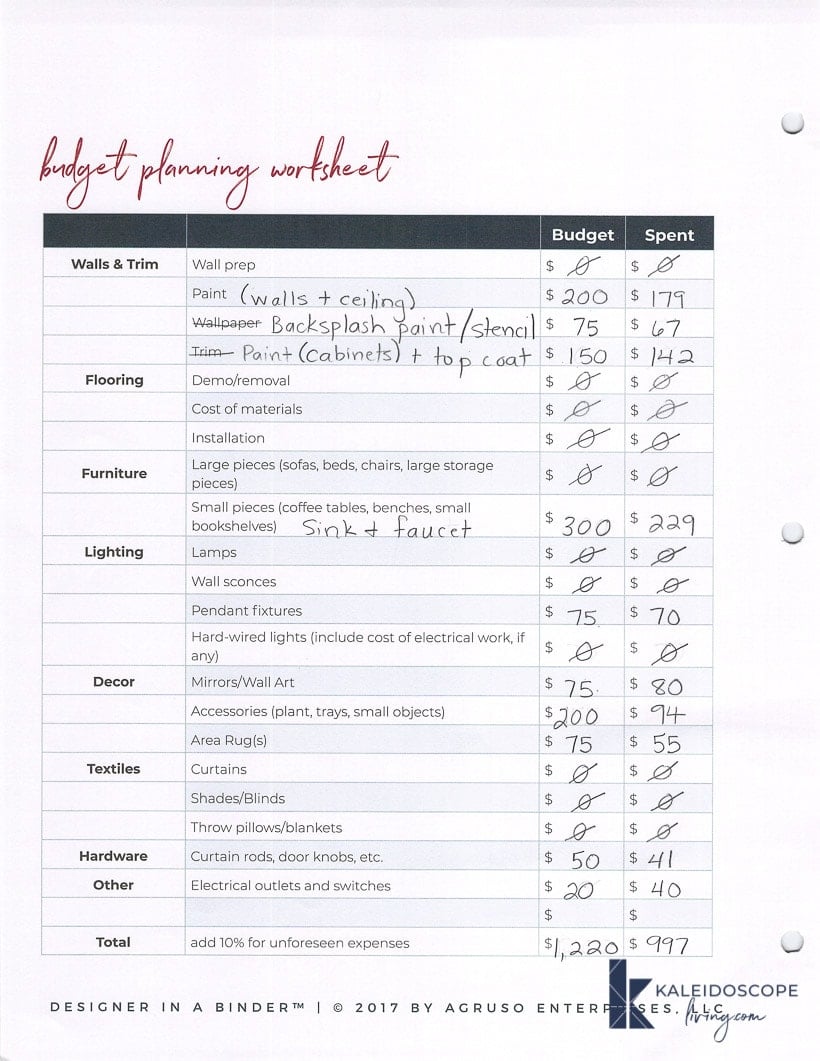 budget planning worksheet
Budget Spent
Walls & Trim Wall prep $ 0 $ 0
Paint (walls + ceiling) $ 200 $ 179
Wallpaper Backsplash paint/stencil $ 75 $ 67
Trim Paint (cabinets) + top coat $ 150 $ 142
Flooring Demo/removal $ 0 $ 0
Cost of materials $ 0 $ 0
Installation $ 0 $ 0
Furniture Large pieces (sofas, beds, chairs, large storage
pieces) $ 0 $ 0
Small pieces (coffee tables, benches, small
bookshelves) Sink + faucet $ 300 $ 229
Lighting Lamps $ 0 $ 0
Wall sconces $ 0 $ 0
Pendant fixtures $ 75 $ 70
Hard-wired lights (include cost of electrical work, if
any) $ 0 $ 0
Decor Mirrors/Wall Art $ 75 $ 80
Accessories (plant, trays, small objects) $ 200 $ 94
Area Rug(s) $ 75 $ 55
Textiles Curtains $ 0 $ 0
Shades/Blinds $ 0 $ 0
Throw pillows/blankets $ 0 $ 0
Hardware Curtain rods, door knobs, etc. $ 50 $ 41
Other Electrical outlets and switches $ 20 $ 40
$ $
Total add 10% for unforeseen expenses $1,220 $ 997
DESIGNER IN A BINDER™ | © 2017 BY AGRUSO ENTERPRISES, LLC
KALEIDOSCOPE
living.com